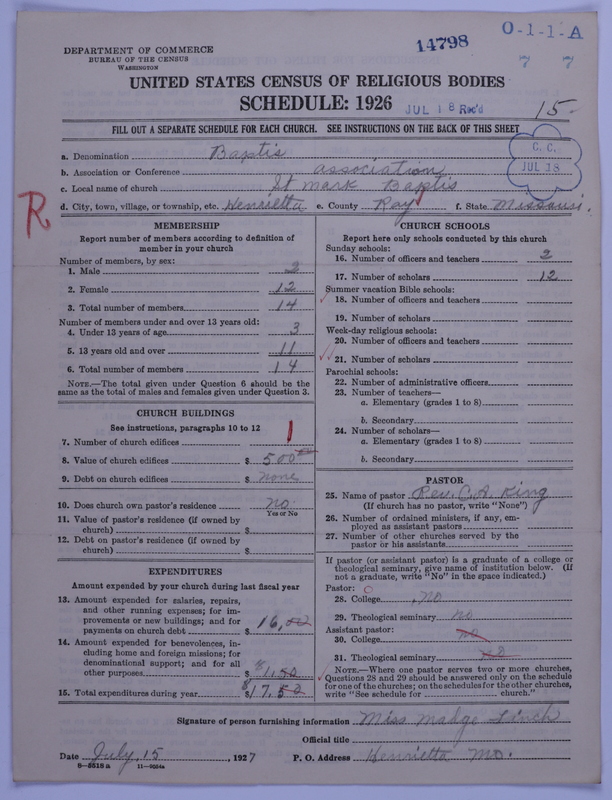 14798
O-1-1-A
7 7
DEPARTMENT OF COMMERCE
BUREAU OF THE CENSUS
WASHINGTON
UNITED STATES CENSUS OF RELIGIOUS BODIES
SCHEDULE: 1926
JUL 18 Rec'd
15-
FILL OUT A SEPARATE SCHEDULE FOR EACH CHURCH. SEE INSTRUCTIONS ON THE BACK OF THIS SHEET
C. C.
JUL 18
a. Denomination Baptis
b. Association or Conference association
c. Local name of church St mark Baptis
R
d. City, town, village, or township, etc. Henrietta e. County Ray f. State Missouri.
MEMBERSHIP
Report number of members according to definition of
member in your church
Number of members, by sex:
1. Male 2
2. Female 12
3. Total number of members 14
Number of members under and over 13 years old:
4. Under 13 years of age 3
5. 13 years old and over 11
6. Total number of members 14
NOTE.—The total given under Question 6 should be the
same as the total of males and females given under Question 3.
CHURCH BUILDINGS
See instructions, paragraphs 10 to 12
7. Number of church edifices 1
8. Value of church edifices $ 500
9. Debt on church edifices $ none
10. Does church own pastor's residence no
Yes or No
11. Value of pastor's residence (if owned by
church) $
12. Debt on pastor's residence (if owned by
church) $
EXPENDITURES
Amount expended by your church during last fiscal year
13. Amount expended for salaries, repairs,
and other running expenses; for im-
provements or new buildings; and for
payments on church debt $ 16,00
14. Amount expended for benevolences, in-
cluding home and foreign missions; for
denominational support; and for all
other purposes $ 1.50
15. Total expenditures during year $ 17.50
CHURCH SCHOOLS
Report here only schools conducted by this church
Sunday schools:
16. Number of officers and teachers 2
17. Number of scholars 12
Summer vacation Bible schools:
18. Number of officers and teachers
19. Number of scholars
Week-day religious schools:
20. Number of officers and teachers
21. Number of scholars
Parochial schools:
22. Number of administrative officers
23. Number of teachers—
a. Elementary (grades 1 to 8)
b. Secondary
24. Number of scholars—
a. Elementary (grades 1 to 8)
b. Secondary
PASTOR
25. Name of pastor Rev. C. A. King
(If church has no pastor, write "None")
26. Number of ordained ministers, if any, em-
ployed as assistant pastors
27. Number of other churches served by the
pastor or his assistants
If pastor (or assistant pastor) is a graduate of a college or
theological seminary, give name of institution below. (If
not a graduate, write "No" in the space indicated.)
Pastor: O
28. College no
29. Theological seminary no
Assistant pastor:
30. College no
31. Theological seminary no
NOTE.—Where one pastor serves two or more churches,
Questions 28 and 29 should be answered only on the schedule
for one of the churches; on the schedules for the other churches,
write "See schedule for church."
Signature of person furnishing information Miss Madge Linch
Official title
Date July, 15, 1927 P. O. Address Henrietta Mo.
8—5518a 11—9034a